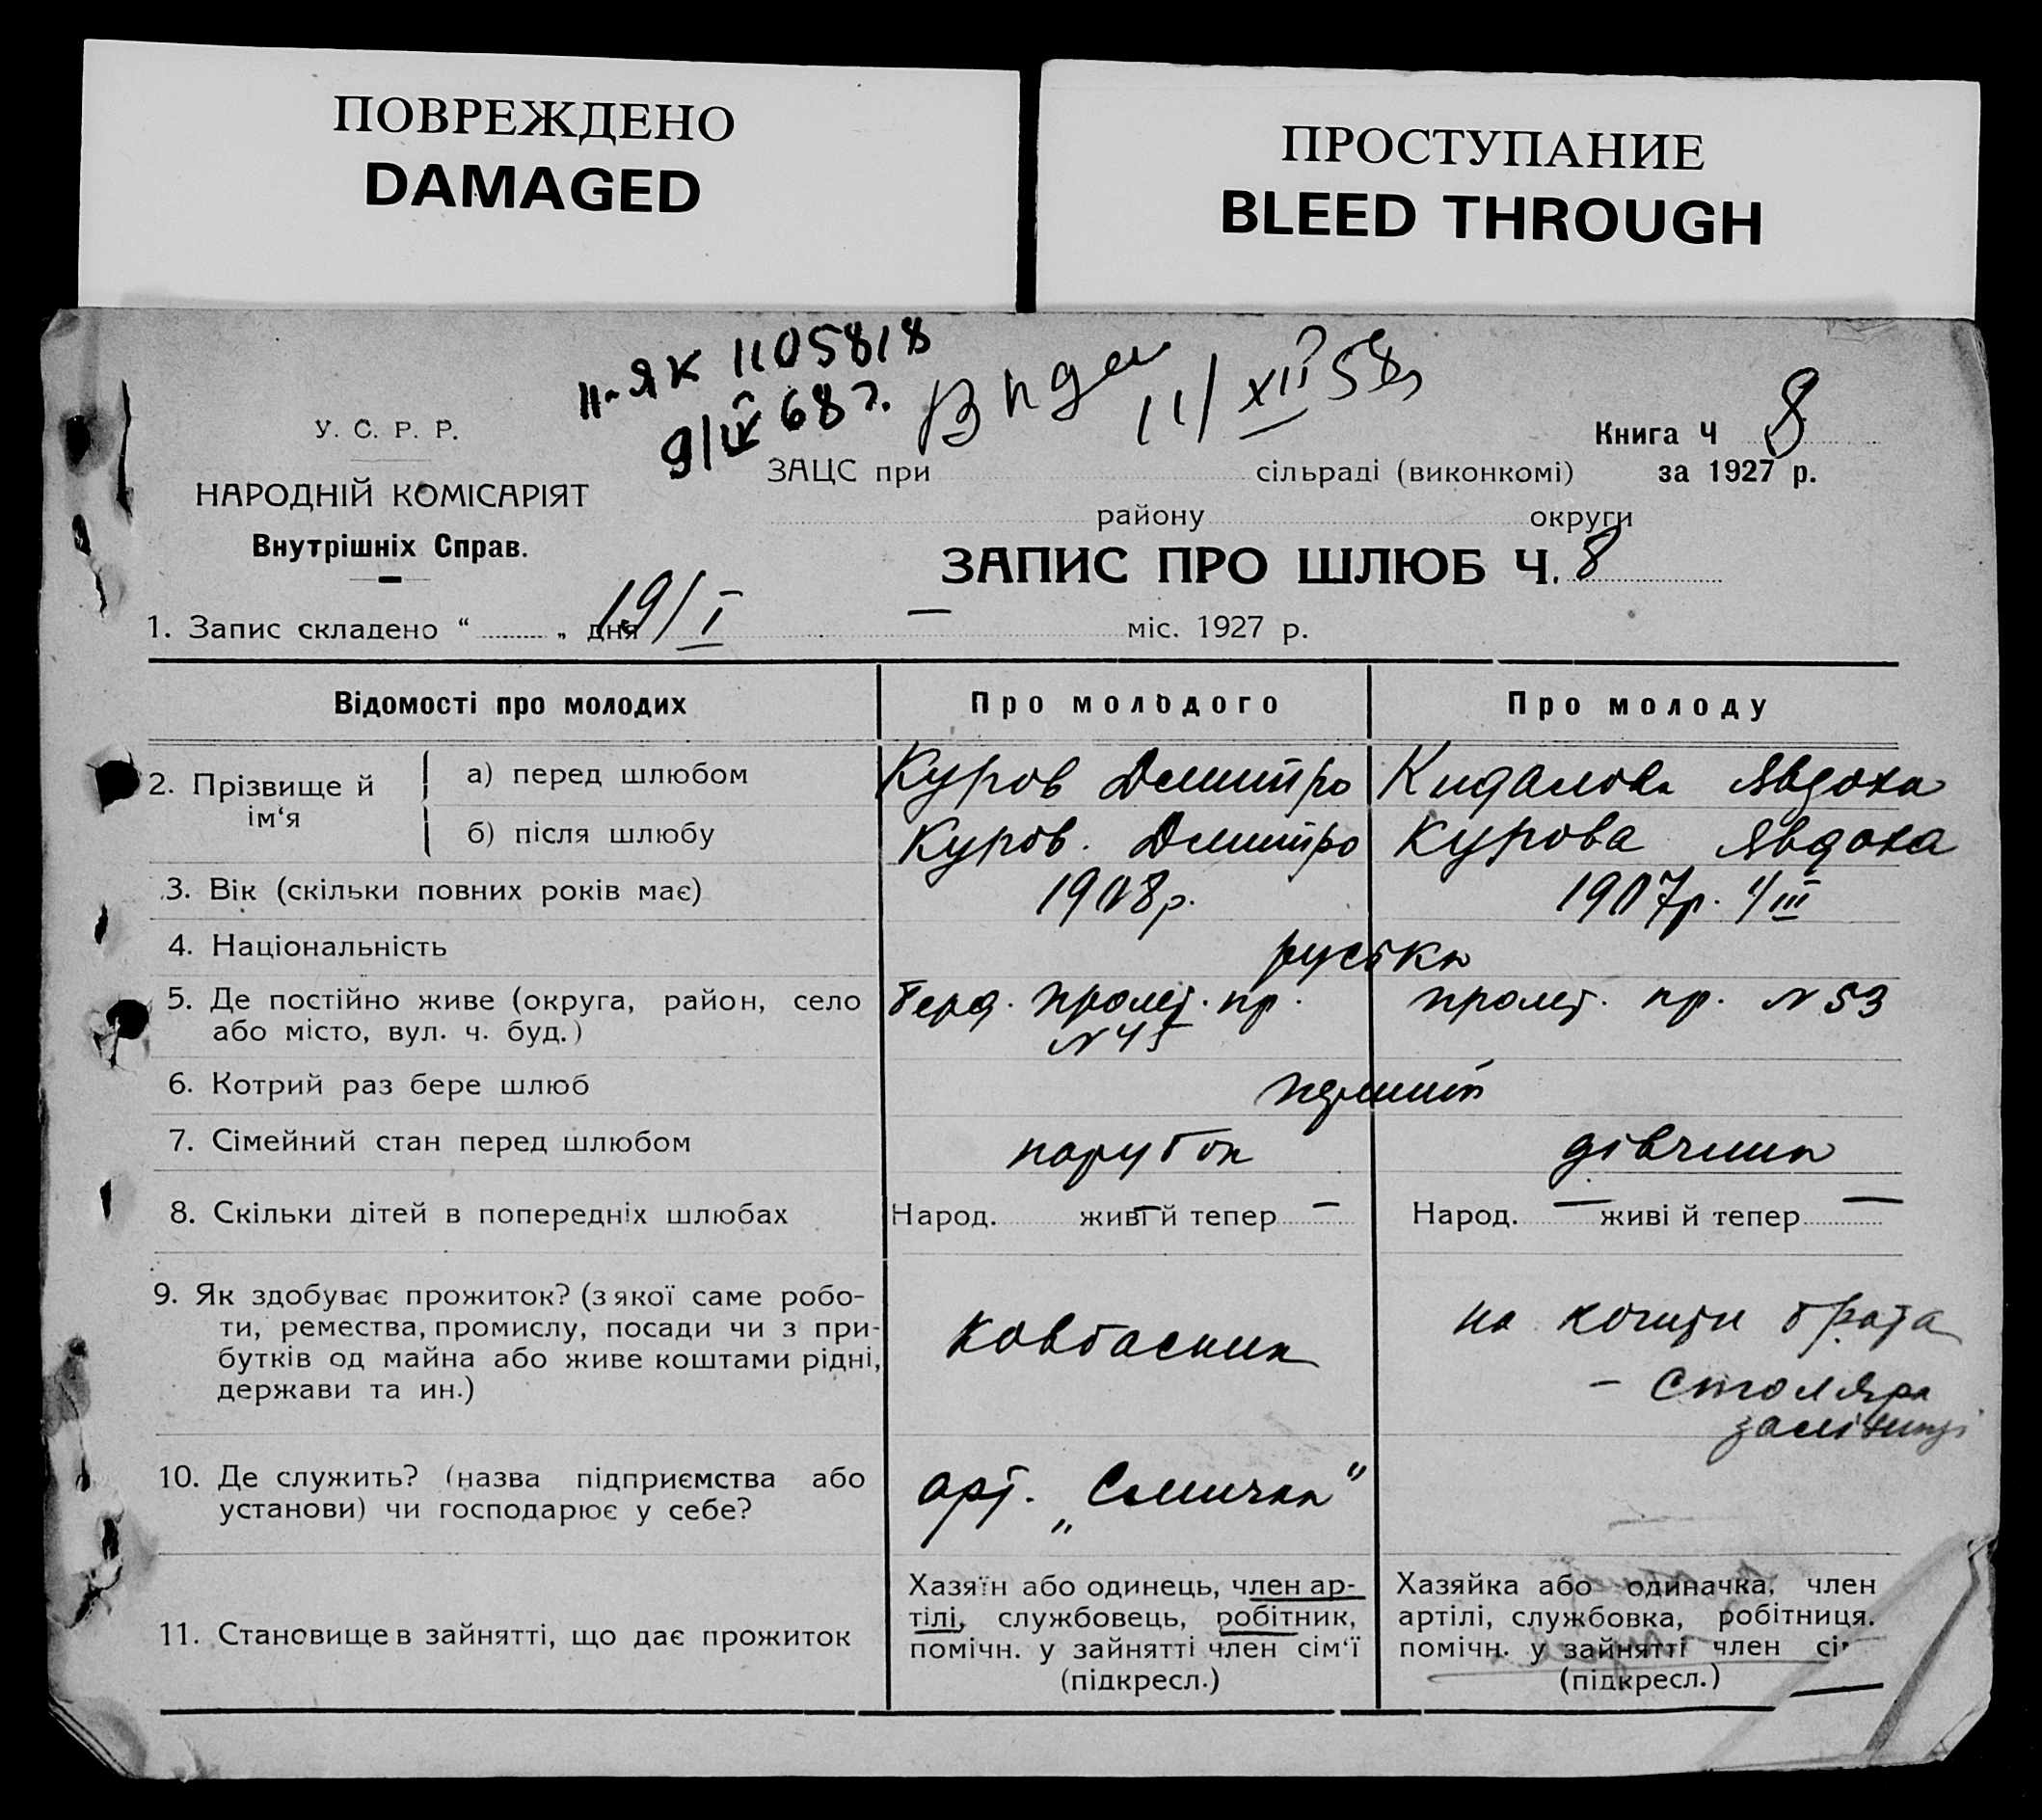 ПОВРЕЖДЕНО
DAMAGED
ПРОСТУПАНИЕ
BLEED THROUGH
ЯК 1105818
9/IV 68 г.
11/XII 58
У. С. Р. Р.
НАРОДНІЙ КОМІСАРІЯТ
Внутрішніх Справ.
Книга Ч 8
ЗАЦС при сільраді (виконкомі) за 1927 р.
району округи
ЗАПИС ПРО ШЛЮБ Ч. 8
1. Запис складено “ „ дня 19/I — міс. 1927 р.
Відомості про молодих
Про молодого
Про молоду
2. Прізвище й ім‘я
а) перед шлюбом
Куров Дмитро
Кидалова Явдоха
б) після шлюбу
Куров. Дмитро
Курова Явдоха
3. Вік (скільки повних років має)
1908 р.
1907 р. 4/III
4. Національність
руські
5. Де постійно живе (округа, район, село
або місто, вул. ч. буд.)
Берд. пролет. пр.
N 45
пролет. пр. N 53
6. Котрий раз бере шлюб
перший
7. Сімейний стан перед шлюбом
парубок
дівчина
8. Скільки дітей в попередніх шлюбах
Народ. — живі й тепер —
Народ. — живі й тепер —
9. Як здобуває прожиток? (з якої саме робо-
ти, ремества, промислу, посади чи з при-
бутків од майна або живе коштами рідні,
держави та ин.)
Ковбасник
на кошти брата
– столяра
залізниці
10. Де служить? (назва підприємства або
установи) чи господарює у себе?
арт. „Смичка“
11. Становище в зайнятті, що дає прожиток
Хазяїн або одинець, член ар-
тілі, службовець, робітник,
помічн. у зайнятті член сім‘ї
(підкресл.)
Хазяйка або одиначка, член
артілі, службовка, робітниця.
помічн. у зайнятті член сі
(підкресл.) —